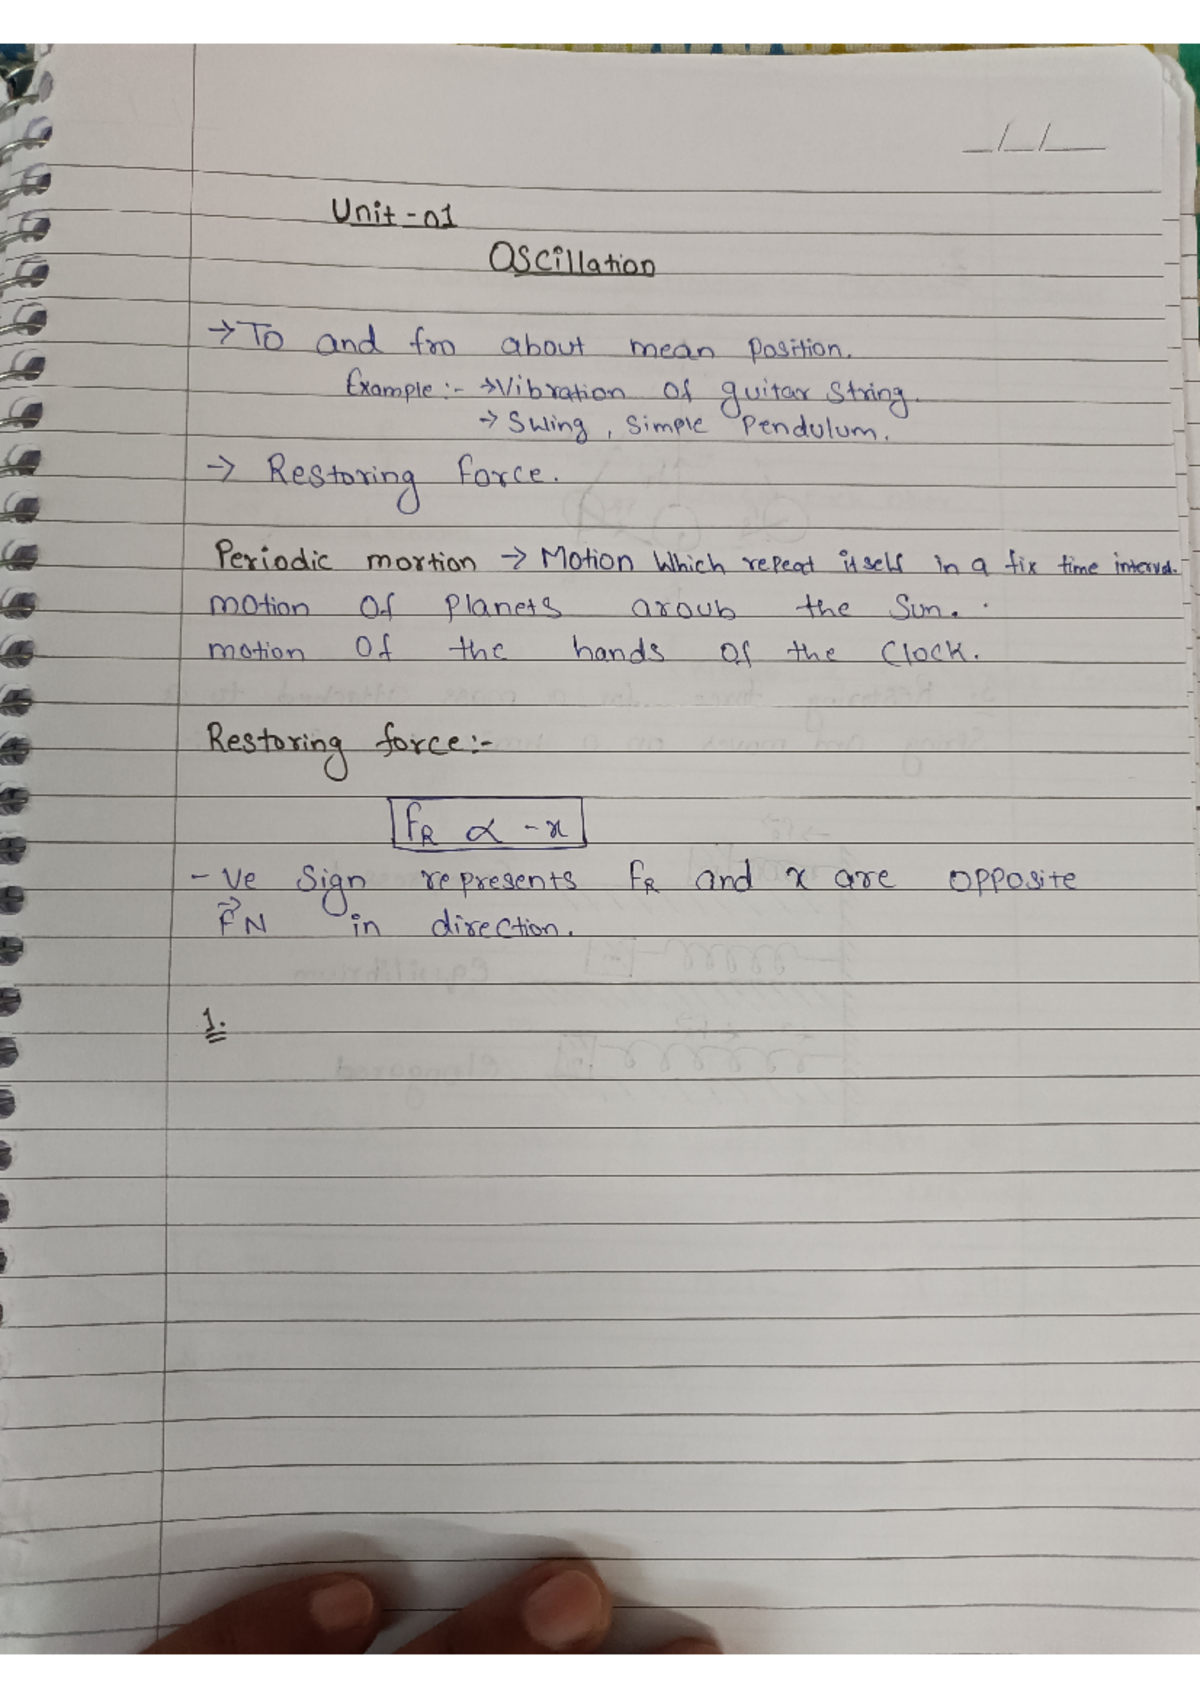 _/_/__
Unit-01
Oscillation
→ To and fro about mean position.
Example :- → Vibration of guitar string.
→ Swing, simple pendulum.
→ Restoring force.
Periodic mortion → Motion which repeat itself in a fix time interval.
motion of planets aroub the Sun.
motion of the hands of the clock.
Restoring force:-
F_R ∝ -x
-ve sign represents F_R and x are opposite
F⃗N in direction.
1.